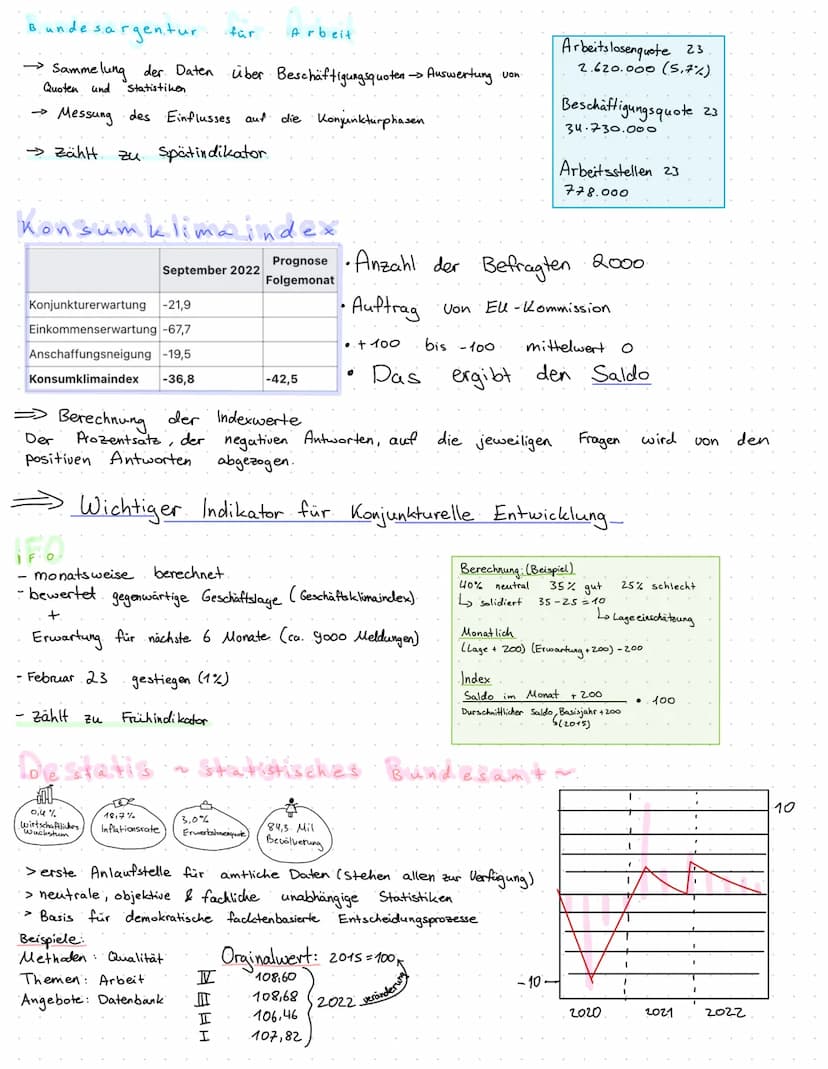 Bundesargentur für Arbeit
→ Sammelung der Daten über Beschäftigungsquoten → Auswertung von
Quoten und Statistiken
→ Messung des Einflusses auf die Konjunkturphasen
→ zählt zu Spätindikator
Arbeitslosenquote 23
2.620.000 (5,7%)
Beschäftigungsquote 23
34.730.000
Arbeitsstellen 23
778.000
Konsumklimaindex
September 2022 Prognose
Folgemonat
Konjunkturerwartung -21,9
Einkommenserwartung -67,7
Anschaffungsneigung -19,5
Konsumklimaindex -36,8 -42,5
• Anzahl der Befragten 2000
• Auftrag von EU-Kommission
• +100 bis -100 mittelwert 0
• Das ergibt den Saldo
⇒ Berechnung der Indexwerte
Der Prozentsatz, der negativen Antworten, auf die jeweiligen Fragen wird von den
positiven Antworten abgezogen.
⇒ Wichtiger Indikator für Konjunkturelle Entwicklung
IFO
- monatsweise berechnet
- bewertet gegenwärtige Geschäftslage (Geschäftsklimaindex)
+
Erwartung für nächste 6 Monate (ca. 9000 Meldungen)
- Februar 23 gestiegen (1%)
- zählt zu Frühindikator
Berechnung: (Beispiel)
40% neutral 35% gut 25% schlecht
↳ solidiert 35-25=10
↳ Lageeinschätzung
Monatlich
(Lage + 200) (Erwartung + 200) - 200
Index
Saldo im Monat + 200
Durschnittlicher Saldo, Basisjahr + 200
• 100
↳ (2015)
Destatis ~ Statistisches Bundesamt ~
0,4%
Wirtschaftliches
Wachstum
18,7%
Inflationsrate
3,0%
84,3 Mil
Bevölkerung
> erste Anlaufstelle für amtliche Daten (Stehen allen zur Verfügung)
> neutrale, objektive & fachliche unabhängige Statistiken
> Basis für demokratische facktenbasierte Entscheidungsprozesse
Beispiele:
Methoden: Qualität
Themen: Arbeit
Angebote: Datenbank
Orginalwert: 2015=100
IV 108,60
III 108,68
II 106,46
I 107,82
2022 veränderung
10
-10
2020 2021 2022